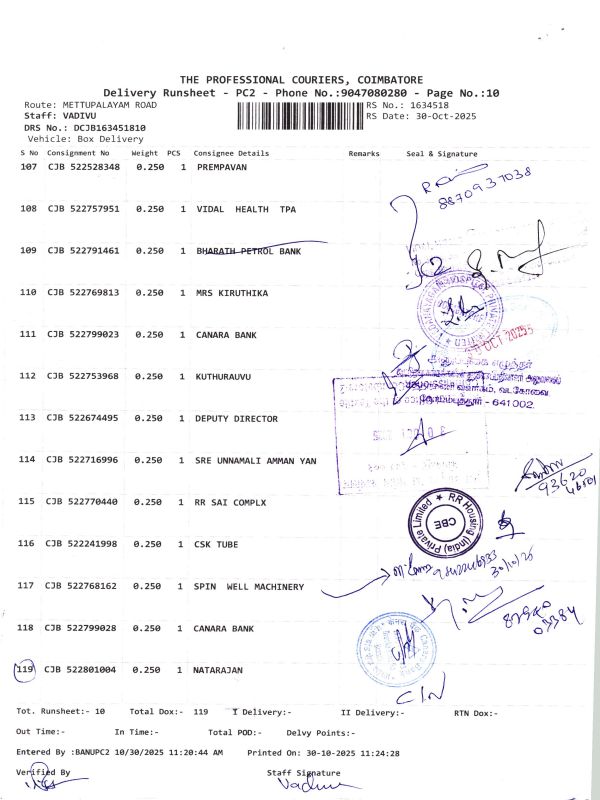 THE PROFESSIONAL COURIERS, COIMBATORE
Delivery Runsheet - PC2 - Phone No.:9047080280 - Page No.:10
Route: METTUPALAYAM ROAD RS No.: 1634518
Staff: VADIVU RS Date: 30-Oct-2025
DRS No.: DCJB163451810
Vehicle: Box Delivery
S No Consignment No Weight PCS Consignee Details Remarks Seal & Signature
107 CJB 522528348 0.250 1 PREMPAVAN
8870937038
108 CJB 522757951 0.250 1 VIDAL HEALTH TPA
109 CJB 522791461 0.250 1 BHARATH PETROL BANK
110 CJB 522769813 0.250 1 MRS KIRUTHIKA
111 CJB 522799023 0.250 1 CANARA BANK
OCT 2025
112 CJB 522753968 0.250 1 KUTHURAVU
வடகோவை
641 002.
113 CJB 522674495 0.250 1 DEPUTY DIRECTOR
114 CJB 522716996 0.250 1 SRE UNNAMALI AMMAN YAN
93620
115 CJB 522770440 0.250 1 RR SAI COMPLX
RR Housing (India) Private Limited
CBE
116 CJB 522241998 0.250 1 CSK TUBE
30/10/25
117 CJB 522768162 0.250 1 SPIN WELL MACHINERY
118 CJB 522799028 0.250 1 CANARA BANK
119 CJB 522801004 0.250 1 NATARAJAN
Tot. Runsheet:- 10 Total Dox:- 119 I Delivery:- II Delivery:- RTN Dox:-
Out Time:- In Time:- Total POD:- Delvy Points:-
Entered By :BANUPC2 10/30/2025 11:20:44 AM Printed On: 30-10-2025 11:24:28
Verified By Staff Signature